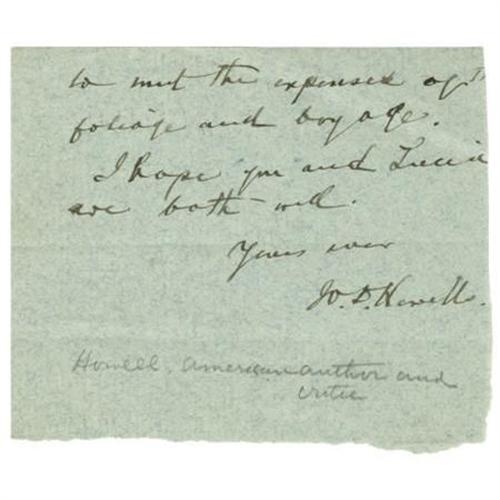 to meet the expenses of
foliage and voyage.
I hope you and Lucia
are both well.
Yours ever
W. D. Howells.
Howell, American author and
critic